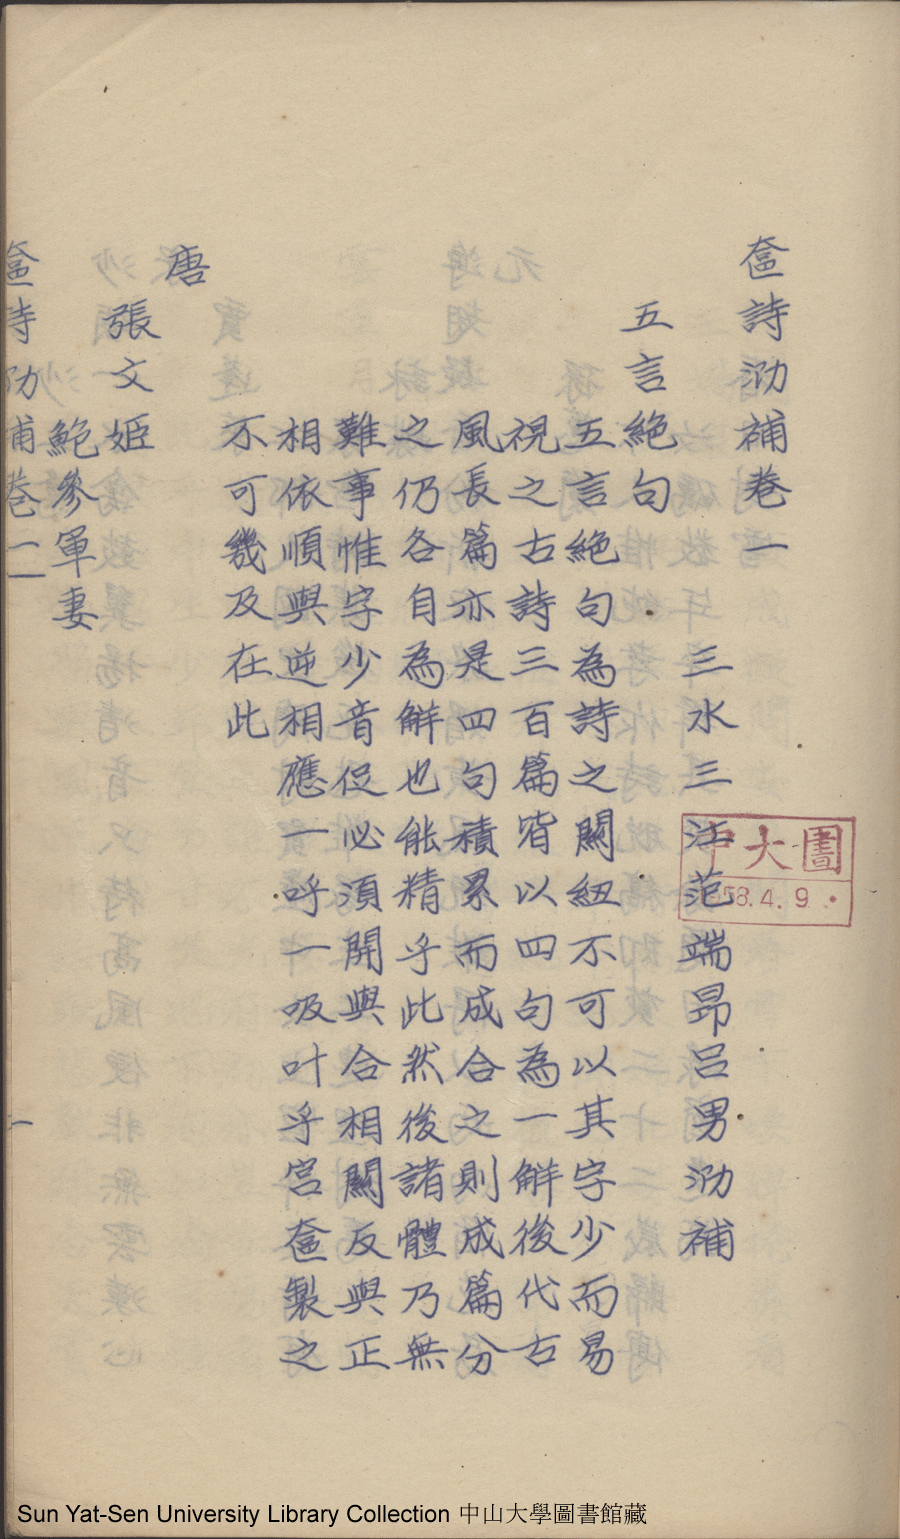 奩詩泐補卷一
三水三江范端昻呂男泐補
五言絕句
五言絕句為詩之關紐不可以其字少而易
視之古詩三百篇皆以四句為一解後代古
風長篇亦是四句積累而成合之則成篇分
之仍各自為解也能精乎此然後諸體乃無
難事惟字少音促必須開與合相關反與正
相依順與逆相應一呼一吸叶乎宮奩製之
不可幾及在此
唐
張文姬
鮑參軍妻
奩詩泐補卷一
一
中大圖
58.4.9.
Sun Yat-Sen University Library Collection 中山大學圖書館藏